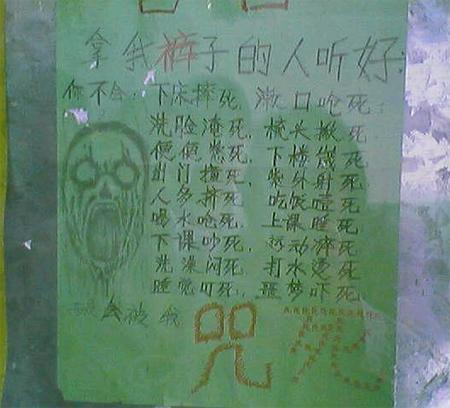 拿我裤子的人听好:
你不会: 下床摔死, 漱口呛死;
洗脸淹死, 梳头 死
便便 死, 下楼 死
出门撞死, 紫外射死
人多挤死, 吃饭噎死
喝水呛死, 上课睡死
下课吵死, 运动猝死
洗澡闷死, 打水烫死
睡觉叮死, 噩梦吓死
会被我 咒死